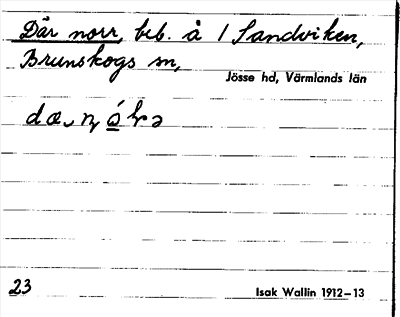 Där norr, beb. å 1 Sandviken,
Brunskogs sn,
Jösse hd, Värmlands län
23
Isak Wallin 1912–13